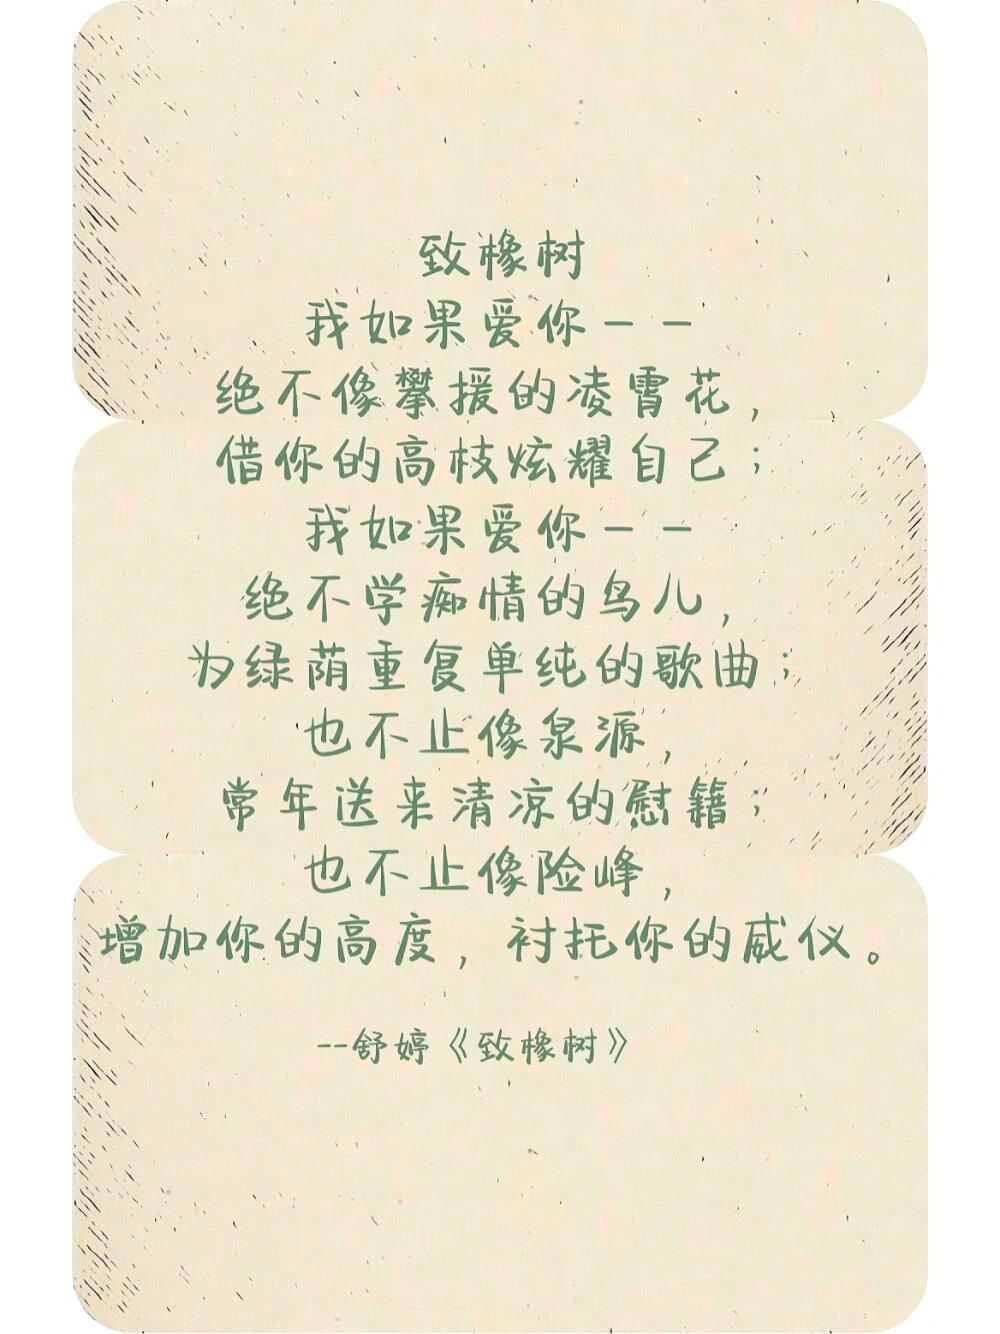 致橡树
我如果爱你--
绝不像攀援的凌霄花,
借你的高枝炫耀自己;
我如果爱你--
绝不学痴情的鸟儿,
为绿荫重复单纯的歌曲;
也不止像泉源,
常年送来清凉的慰籍;
也不止像险峰,
增加你的高度,衬托你的威仪。
--舒婷《致橡树》